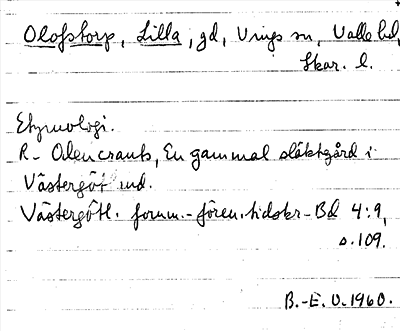 Olofstorp, Lilla, gd, Vings sn, Valle hd,
Skar. l.
Etymologi.
R. Odencrants, En gammal släktgård i
Västergötland.
Västergötl. fornm.-fören. tidskr. Bd 4:9,
s. 109.
B.-E. O. 1960.